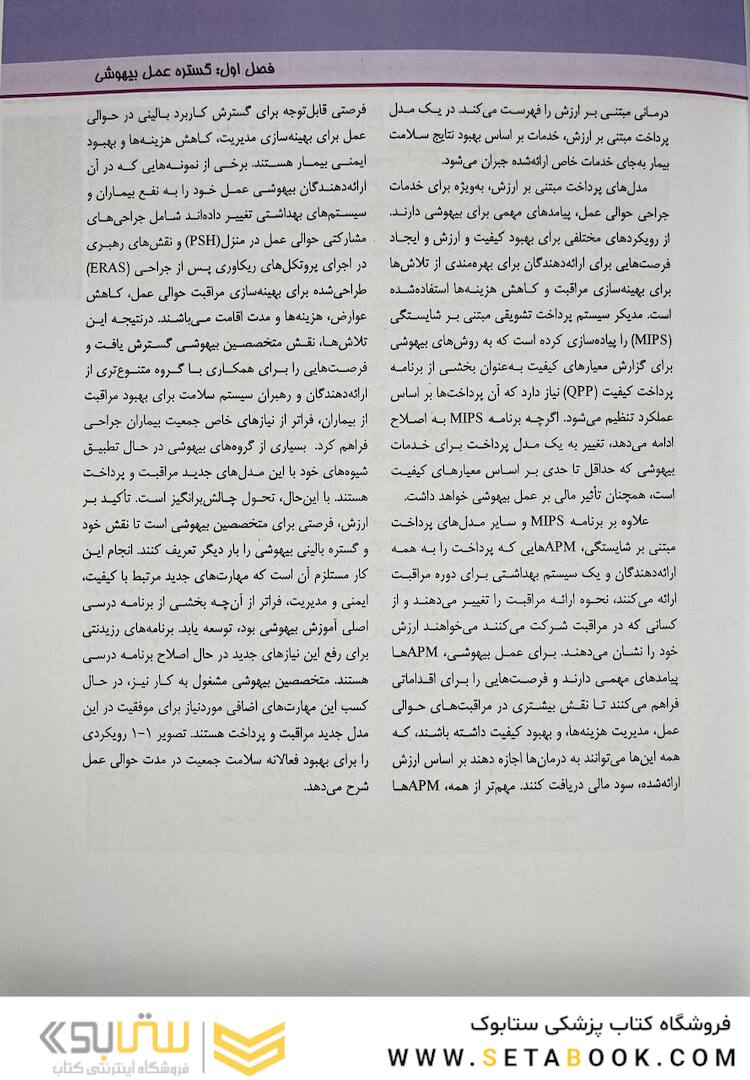 فصل اول: گستره عمل بیهوشی
درمانی مبتنی بر ارزش را فهرست می‌کند. در یک مدل
پرداخت مبتنی بر ارزش، خدمات بر اساس بهبود نتایج سلامت
بیمار به‌جای خدمات خاص ارائه‌شده جبران می‌شود.
مدل‌های پرداخت مبتنی بر ارزش، به‌ویژه برای خدمات
جراحی حوالی عمل، پیامدهای مهمی برای بیهوشی دارند.
از رویکردهای مختلفی برای بهبود کیفیت و ارزش و ایجاد
فرصت‌هایی برای ارائه‌دهندگان برای بهره‌مندی از تلاش‌ها
برای بهینه‌سازی مراقبت و کاهش هزینه‌ها استفاده‌شده
است. مدیکر سیستم پرداخت تشویقی مبتنی بر شایستگی
(MIPS) را پیاده‌سازی کرده است که به روش‌های بیهوشی
برای گزارش معیارهای کیفیت به‌عنوان بخشی از برنامه
پرداخت کیفیت (QPP) نیاز دارد که آن پرداخت‌ها بر اساس
عملکرد تنظیم می‌شود. اگرچه برنامه MIPS به اصلاح
ادامه می‌دهد، تغییر به یک مدل پرداخت برای خدمات
بیهوشی که حداقل تا حدی بر اساس معیارهای کیفیت
است، همچنان تأثیر مالی بر عمل بیهوشی خواهد داشت.
علاوه بر برنامه MIPS و سایر مدل‌های پرداخت
مبتنی بر شایستگی، APMهایی که پرداخت را به همه
ارائه‌دهندگان و یک سیستم بهداشتی برای دوره مراقبت
ارائه می‌کنند، نحوه ارائه مراقبت را تغییر می‌دهند و از
کسانی که در مراقبت شرکت می‌کنند می‌خواهند ارزش
خود را نشان می‌دهند. برای عمل بیهوشی، APMها
پیامدهای مهمی دارند و فرصت‌هایی را برای اقداماتی
فراهم می‌کنند تا نقش بیشتری در مراقبت‌های حوالی
عمل، مدیریت هزینه‌ها، و بهبود کیفیت داشته باشند، که
همه این‌ها می‌توانند به درمان‌ها اجازه دهند بر اساس ارزش
ارائه‌شده، سود مالی دریافت کنند. مهم‌تر از همه، APMها
فرصتی قابل‌توجه برای گسترش کاربرد بالینی در حوالی
عمل برای بهینه‌سازی مدیریت، کاهش هزینه‌ها و بهبود
ایمنی بیمار هستند. برخی از نمونه‌هایی که در آن
ارائه‌دهندگان بیهوشی عمل خود را به نفع بیماران و
سیستم‌های بهداشتی تغییر داده‌اند شامل جراحی‌های
مشارکتی حوالی عمل در منزل(PSH) و نقش‌های رهبری
در اجرای پروتکل‌های ریکاوری پس از جراحی (ERAS)
طراحی‌شده برای بهینه‌سازی مراقبت حوالی عمل، کاهش
عوارض، هزینه‌ها و مدت اقامت می‌باشند. درنتیجه این
تلاش‌ها، نقش متخصصین بیهوشی گسترش یافت و
فرصت‌هایی را برای همکاری با گروه متنوع‌تری از
ارائه‌دهندگان و رهبران سیستم سلامت برای بهبود مراقبت
از بیماران، فراتر از نیازهای خاص جمعیت بیماران جراحی
فراهم کرد. بسیاری از گروه‌های بیهوشی در حال تطبیق
شیوه‌های خود با این مدل‌های جدید مراقبت و پرداخت
هستند. با این‌حال، تحول چالش‌برانگیز است. تأکید بر
ارزش، فرصتی برای متخصصین بیهوشی است تا نقش خود
و گستره بالینی بیهوشی را بار دیگر تعریف کنند. انجام این
کار مستلزم آن است که مهارت‌های جدید مرتبط با کیفیت،
ایمنی و مدیریت، فراتر از آن‌چه بخشی از برنامه درسی
اصلی آموزش بیهوشی بود، توسعه یابد. برنامه‌های رزیدنتی
برای رفع این نیازهای جدید در حال اصلاح برنامه درسی
هستند. متخصصین بیهوشی مشغول به کار نیز، در حال
کسب این مهارت‌های اضافی موردنیاز برای موفقیت در این
مدل جدید مراقبت و پرداخت هستند. تصویر ۱-۱ رویکردی
را برای بهبود فعالانه سلامت جمعیت در مدت حوالی عمل
شرح می‌دهد.
فروشگاه کتاب پزشکی ستابوک
WWW.SETABOOK.COM
ستابوک
فروشگاه اینترنتی کتاب